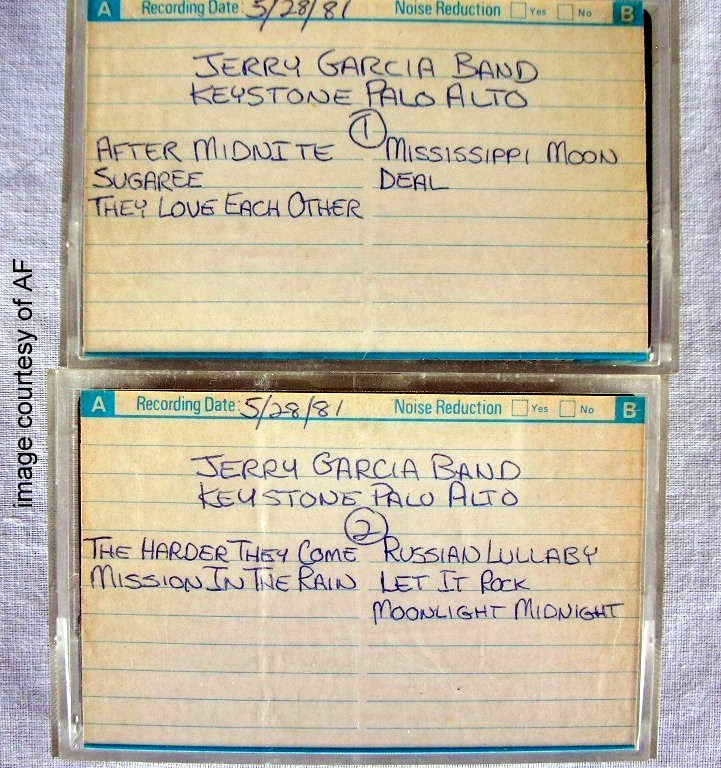 A Recording Date: 5/28/81 Noise Reduction Yes No B
JERRY GARCIA BAND
KEYSTONE PALO ALTO
1
AFTER MIDNITE MISSISSIPPI MOON
SUGAREE DEAL
THEY LOVE EACH OTHER
image courtesy of AF
A Recording Date: 5/28/81 Noise Reduction Yes No B
JERRY GARCIA BAND
KEYSTONE PALO ALTO
2
THE HARDER THEY COME RUSSIAN LULLABY
MISSION IN THE RAIN LET IT ROCK
MOONLIGHT MIDNIGHT